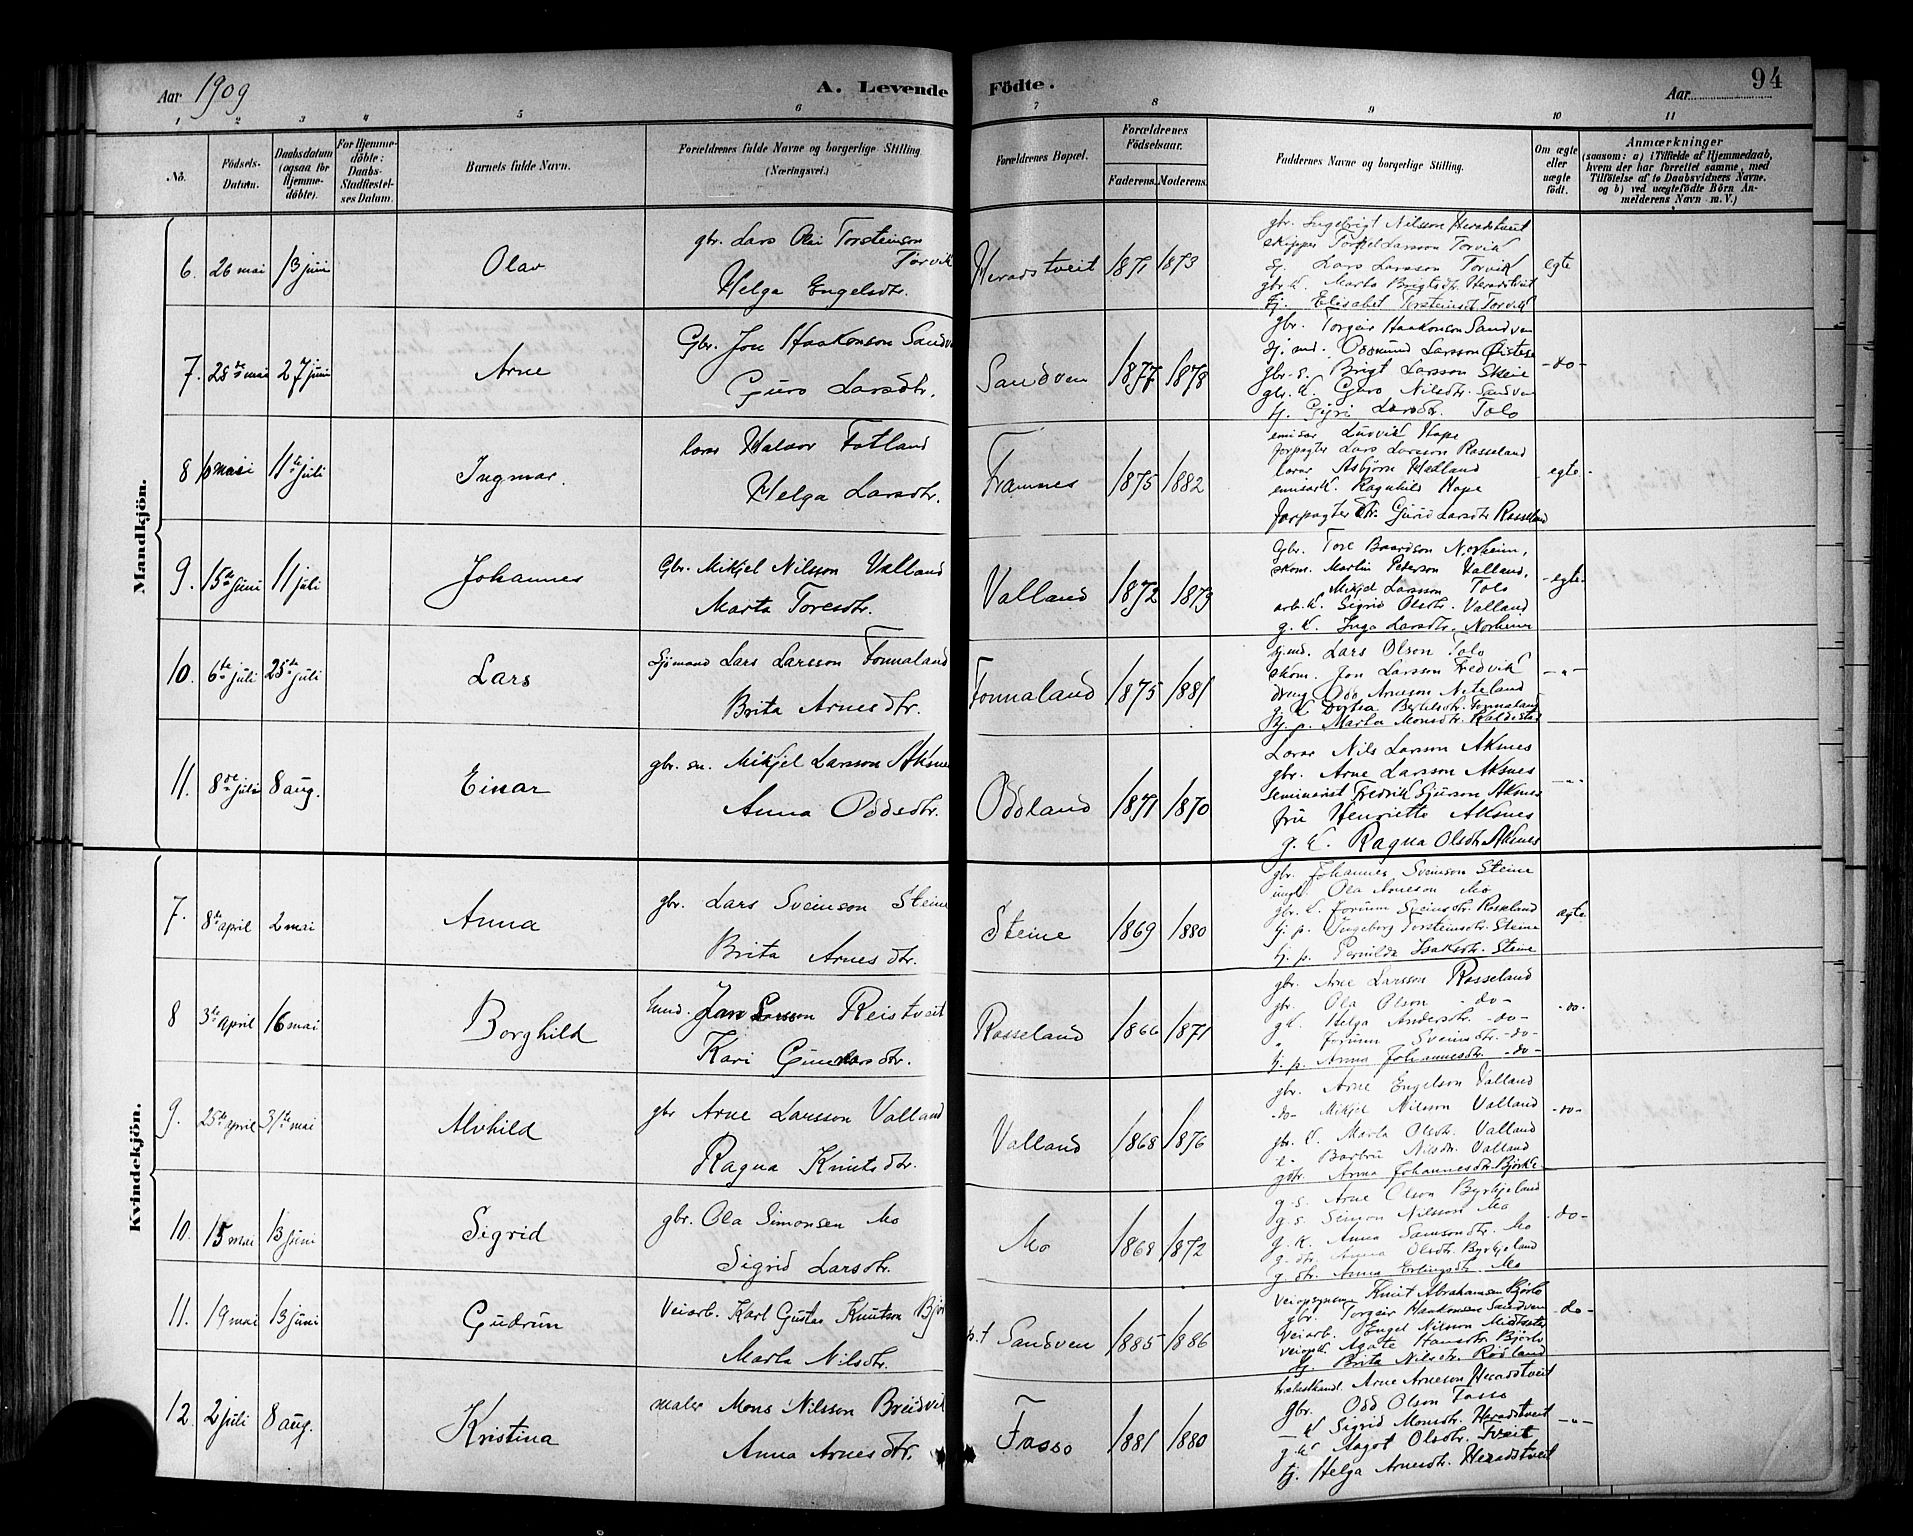 Aar 1909
A. Levende Födte.
Aar 94
1 2 3 4 5 6 7 8 9 10 11
No.
Födsels-Datum.
Daabsdatum (ogsaa for Hjemme-döbte).
For Hjemme-döbte: Daabs-Stadfæstel-ses Datum.
Barnets fulde Navn.
Forældrenes fulde Navne og borgerlige Stilling (Næringsvei.)
Forældrenes Bopæl.
Forældrenes Födselsaar.
Faderens. Moderens.
Faddernes Navne og borgerlige Stilling.
Om ægte eller uægte födt.
Anmærkninger
(saasom: a) i Tilfælde af Hjemmedaab, hvem der har forrettet samme, med Tilföielse af to Daabsvidners Navne, og b) ved uægtefödte Börn An-melderens Navn m. V.)
Mandkjön.
6. 26 mai 13 juni Olav
gbr. Lars Olai Torsteinson Torvik
Helga Engelsdtr.
Heradstveit 1871 1873
gbr. Ingebrigt Nilsson Heradstveit
skipper Torkel Larsson Torvik
Lars Larsson Torvik
gbr. k. Marta Brigtsdtr. Heradstveit
tj. Elisabet Torsteinsdt. Torvik
egte
7. 28de mai 27 juni Arne
Gbr. Jon Haakonson Sandv
Guro Larsdtr.
Sandven 1877 1878
gbr. Torgeir Haakonson Sandven
Odmund Larsson Øistese
gbr. s. Brigt Larsson Skeie
gbr. k. Guro Nilsdtr. Sandven
tj. Gyri Larsdtr. Tolo
-do-
8 mai 11te juli Ingmar.
lærer Halvor Fotland
Helga Larsdtr.
Framnes 1875 1882
emisær Ludvik Hope
forpagter Lars Larsson Rosseland
lærer Asbjörn Hedland
emisærk. Ragnhild Hope
forpagter dtr. Gurid Larsdtr Rosseland
egte
9. 15de juni 11 juli Johannes
Gbr. Mikjel Nilsson Valland
Marta Toresdtr.
Valland 1872 1873
Gbr. Tore Baardson Norheim,
skom. Martin Pederson Valland,
Mikjel Larsson Tolo
arb. k. Sigrid Olsdtr. Valland
g. k. Inga Larsdtr. Norheim
-egte-
10. 6te juli 25de juli Lars
Sjömand Lars Larsson Fonnaland
Brita Arnesdtr.
Fonnaland 1875 1881
Lars Olson Tolo
skom. Jon Larsson Fredvik
dreng Odd Arneson Neteland
g. k. Dortea Bertelsdtr. Fonnaland
tj. p. Marta Monsdtr. Kaldestad
-"-
11. 8de juli 8 aug. Einar
gbr. sn. Mikjel Larsson Aksnes
Anna Oddsdtr.
Oddland 1871 1870
Lærer Nils Larsson Aksnes
gbr. Arne Larsson Aksnes
seminarist Fredrik Sjurson Aksnes
fru Henriette Aksnes
g. k. Ragna Olsdtr Aksnes
-"-
Kvindekjön.
7. 8de april 2 mai Anna
gbr. Lars Sveinson Steine
Brita Arnesdtr.
Steine 1869 1880
gbr. Johannes Sveinson Steine
ungk. Ola Arneson Mo
gbr. k. Jorunn Sveinsdtr. Rosseland
tj. p. Ingeborg Torsteinsdtr. Steine
tj. p. Pernilda Isaksdtr. Steine
egte
8 3de april 16 mai Borghild
Jon Larsson Reistveit
Kari Gunnarsdtr.
Rosseland 1866 1871
gbr. Arne Larsson Rosseland
gbr. Ola Olson -do-
gk. Helga Andersdtr. -do-
" Jorunn Sveinsdtr. -do-
tj. p. Anna Johannesdtr. -do-
-do-
9. 25de april 31te mai Alvhild
gbr Arne Larsson Valland
Ragna Knutsdtr.
Valland 1868 1876
gbr. Arne Engelson Valland
-do- Mikjel Nilsson Valland
gbr. k. Marta Olsdtr. Valland
k. Barbru Nilsdtr. Valland
gdtr. Anna Johannesdtr. Björke
-do-
10. 15 mai 13 juni Sigrid
gbr. Ola Simonsen Mo
Sigrid Larsdtr.
Mo 1868 1872
g. s. Arne Olson Byrkjeland
g. s. Simon Nilsson Mo
g. k. Anna Samsondtr. Mo
g. dtr. Anna Olsdtr. Byrkjeland
g. dtr. Anna Erlingsdtr. Mo
-do-
11. 19 mai 13 juni Gudrun
Veiarb. Karl Gustav Knutson Bjö
Marta Nilsdtr.
p.t Sandven 1885 1886
Veiopsynsm Knut Abrahamsen Björlo
gbr. Torgeir Haakonsen Sandven
Veiarb. Engel Nilsson
veiopk. Agate Hansdtr. Björlo
tj. Brita Nilsdtr. Rödland
-do-
12 2 juli 8 aug. Kristina
maler Mons Nilsson Breidvik
Anna Arnesdtr.
Fosso 1881 1880
Arne Arneson Heradstveit
gbr. Odd Olson Fosso
- k Sigrid Monsdtr. Heradstveit
g. k. Magot Olsdtr. Tveit
tj. Helga Arnesdtr. Heradstveit
-"-